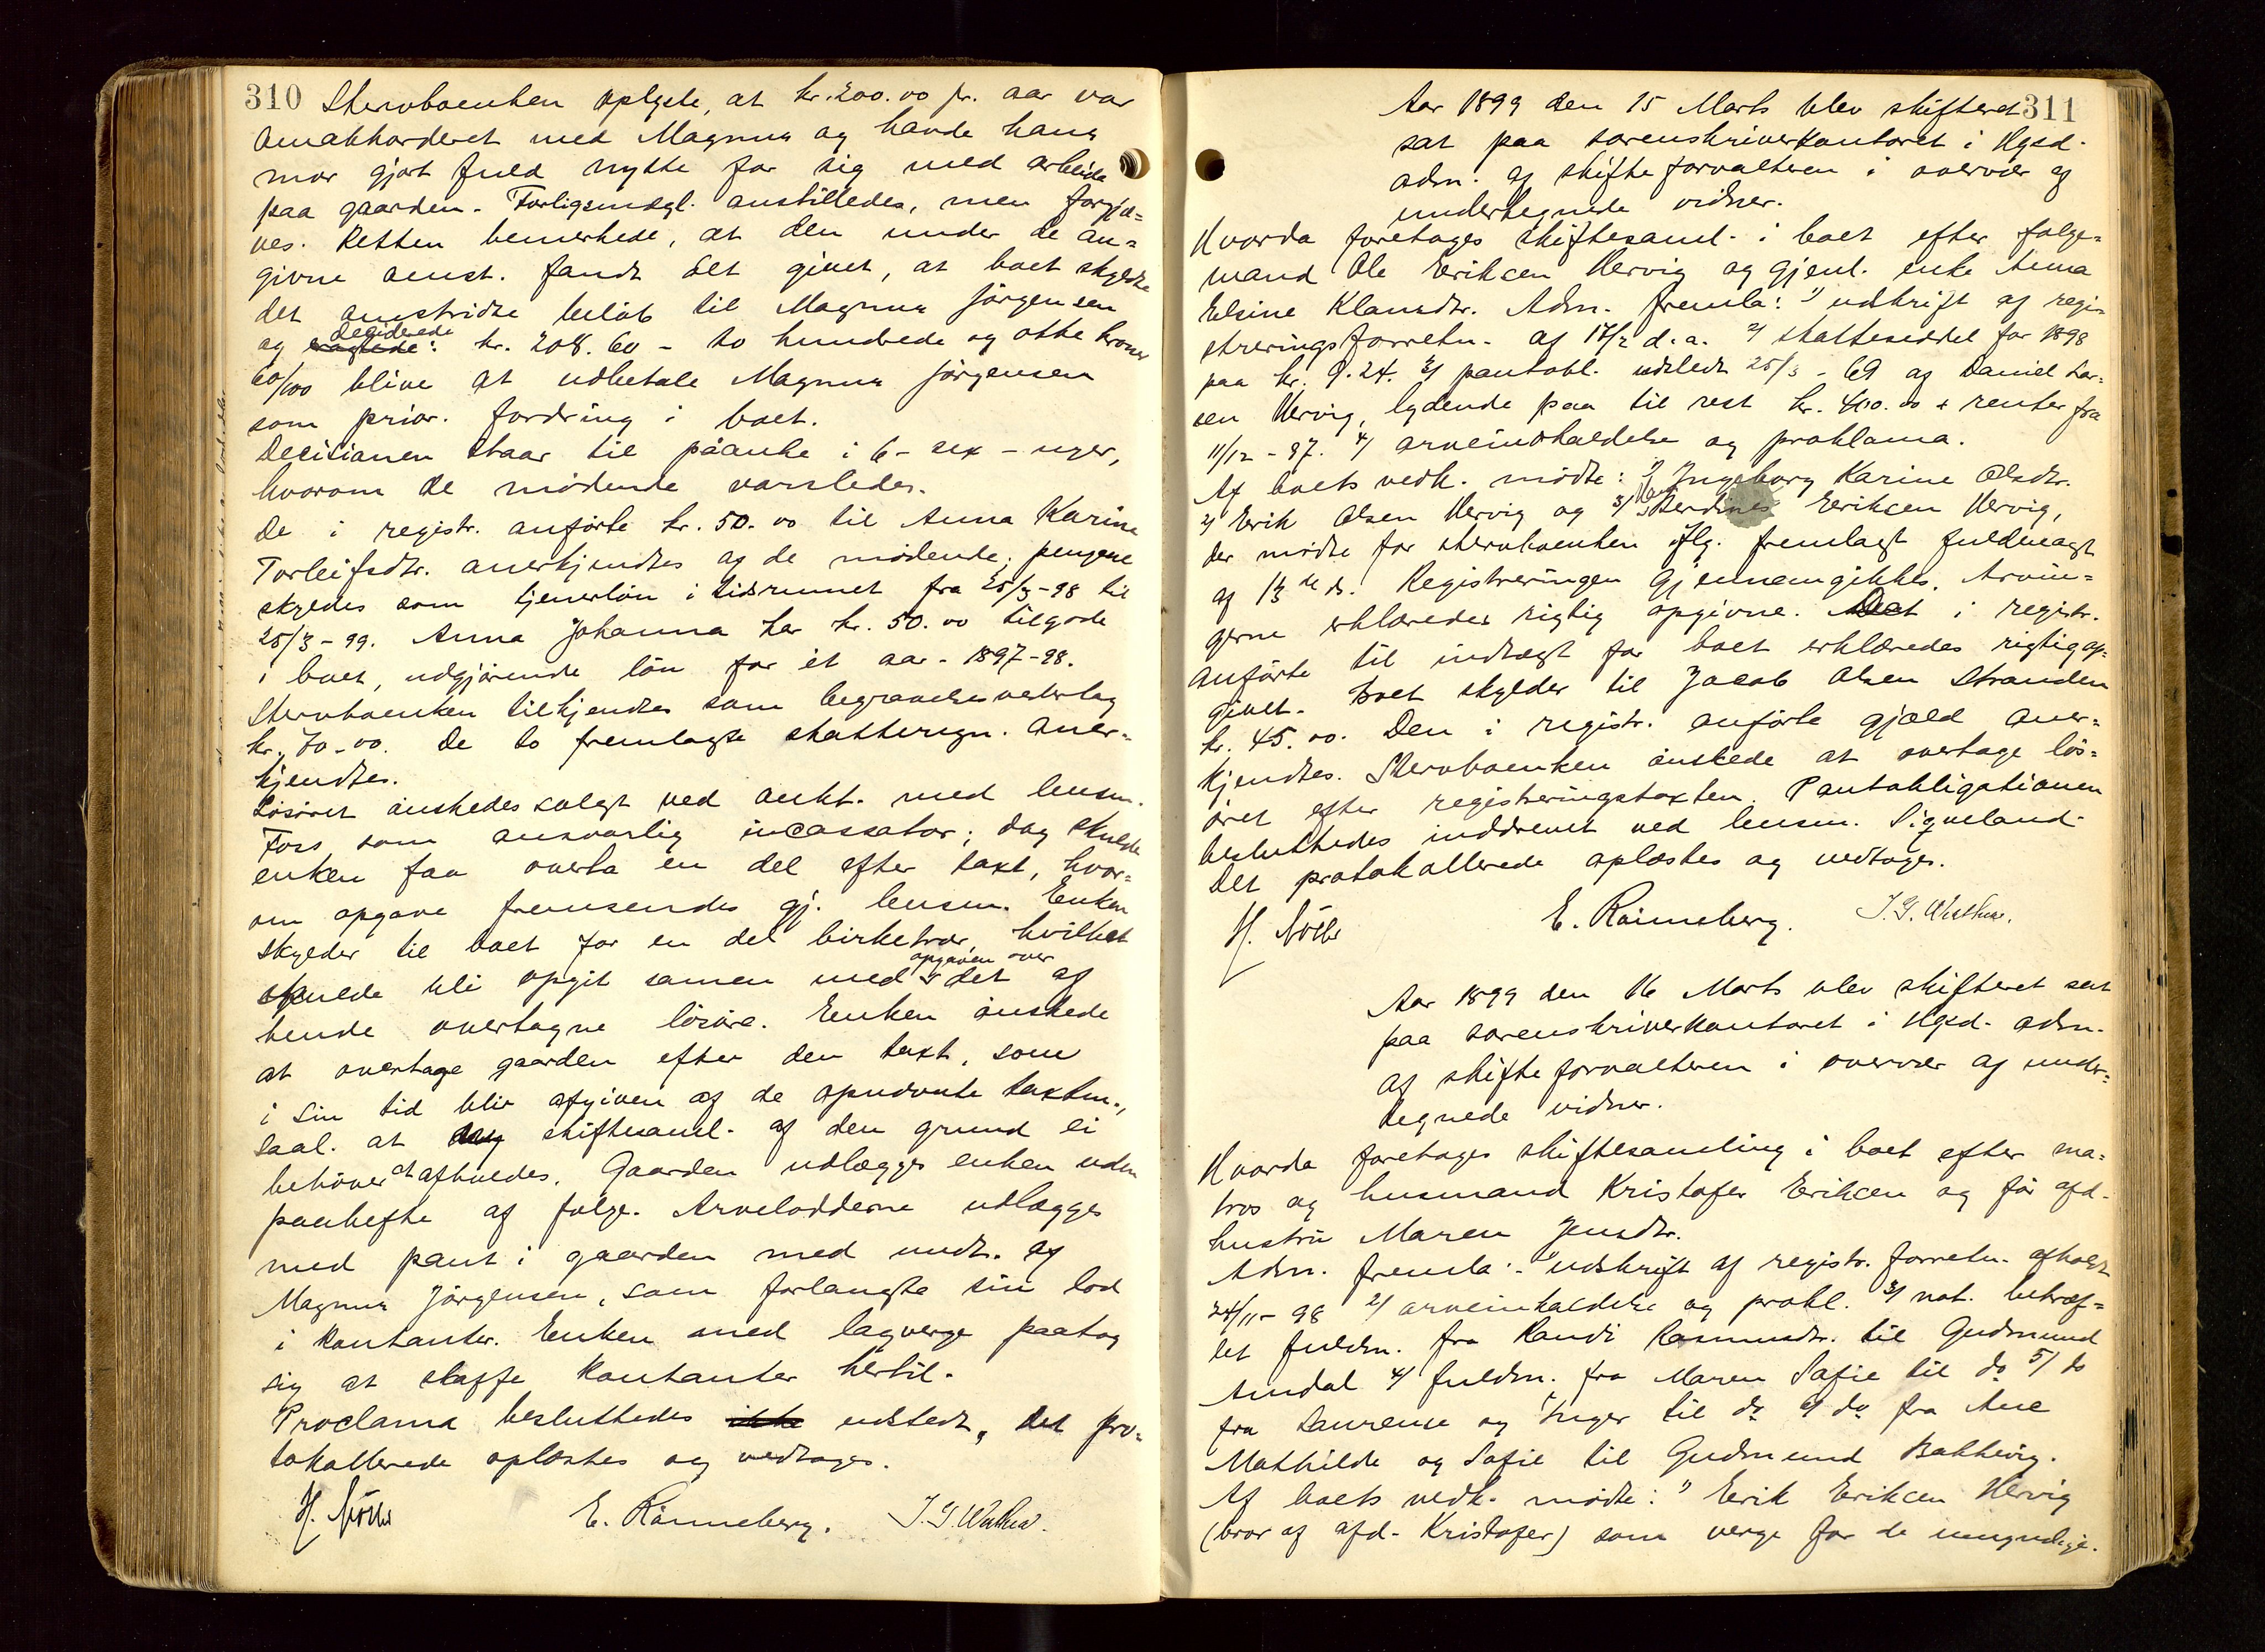 310 Stervboenken oplyste, at kr. 200.00 pr. aar var
omakkorderet med Magnus og havde hans
mor gjort fuld nytte for sig med arbeide
paa gaarden. Forligsmægl. anstilledes, men forgjæ=
ves. Retten bemerkede, at den under de an=
givne omst. fandt det givet, at boet skyldte
det omstridte beløb til Magnus Jörgensen
og deciderede: kr. 208.60 - to hundrede og otte kroner
60/100 blive at udbetale Magnus Jörgensen
som prior. fordring i boet.
Decisionen staar til påanke i 6 - sex - uger,
hvorom de mødende varsledes.
De i registr. anførte kr. 50.00 til Anna Karine
Torleifsdtr. anerkjendtes af de mødende; pengene
skyldes som tjenerløn i tidsrummet fra 25/3-98 til
25/3-99. Anna Johanna har kr. 50.00 tilgode
i boet, udgjørende løn for ét aar - 1897-98.
Stervboenken tilkjendtes som begravelsesvederlag
kr. 70.00. De to fremlagte skatteregn. aner=
kjendtes.
Løsøret ønskedes solgt ved aukt. med lensm.
Foss som ansvarlig incassator; dog skulde
enken faa overta en del efter taxt, hvor=
om opgave fremsendes gj. lensm. Enken
skylder til boet for en del birketrær, hvilket
skulde bli opgit samen med opgaven over det af
hende overtagne løsøre. Enken ønskede
at overtage gaarden efter den taxt, som
i sin tid blir afgiven af de opnævnte taxtm.,
saal. at skiftesaml. af den grund ei
behøver at afholdes. Gaarden udlægges enken uden
paahefte af følge. Arvelodderne udlægges
med pant i gaarden med undt. af
Magnus Jörgensen, som forlangte sin lod
i kontanter. Enken med lagverge paatog
sig at skaffe kontanter hertil.
Proclama besluttedes udstedt. Det pro=
tokollerede oplæstes og vedtoges.
E. Rönneberg.
Aar 1899 den 15 Marts blev skifteret 311
sat paa sorenskriverkontoret i Hgsd.
adm. af skifteforvalteren i overvær af
undertegnede vidner.
Hvorda foretoges skiftesaml. i boet efter følge=
mand Ole Eriksen Hervig og gjenl. enke Anna
Elsine Klausdtr. Adm. fremla: 1) udskrift af regi=
streringsforretn. af 17/2 d.a. 2) skatteseddel for 1898
paa kr. 9.24. 3) pantobl. udstedt 25/3-69 af Daniel Lar=
sen Hervig, lydende paa til rest kr. 400.00 + renter fra
11/12-97. 4) arveindkaldelse og proklama.
Af boets vedk. mødte: 1) Ingeborg Karine Olsdtr.
2) Erik Olsen Hervig og 3) Berdines Eriksen Hervig,
der mødte for stervboenken iflg. fremlagt fuldmagt
af 13de ds. Registreringen gjennemgikkes. Arvin=
gerne erklæredes rigtig opgivne. Det i registr.
anførte til indtægt for boet erklæredes rigtig op=
givet. Boet skylder til Jacob Olsen Stranden
kr. 45.00. Den i registr. anførte gjæld aner=
kjendtes. Stervboenken ønskede at overtage løs=
øret efter registreringstaxten. Pantobligationen
besluttedes inddrevet ved lensm. Sigveland.
Det protokollerede oplæstes og vedtoges.
E. Rönneberg.
Aar 1899 den 16 Marts blev skifteret sat
paa sorenskriverkontoret i Hgsd. adm.
af skifteforvalteren i overvær af under=
tegnede vidner.
Hvorda foretoges skiftesamling i boet efter ma=
tros og husmand Kristofer Eriksen og før afd.
hustru Maren Jensdtr.
Adm. fremla: 1) udskrift af registr. forretn. afholdt
24/11-98 2) arveindkaldelse og prokl. 3) not. bekræf=
tet fuldm. fra Randi Rasmusdtr. til Gudmund
Amdal 4) fuldm. fra Maren Sofie til do 5) do
fra Laurense og Inger til do 6) do fra Ane
Mathilde og Sofie til Gudmund Bakkevig.
Af boets vedk. mødte: 1) Erik Eriksen Hervig
(bror af afd. Kristofer) som verge for de umyndige.